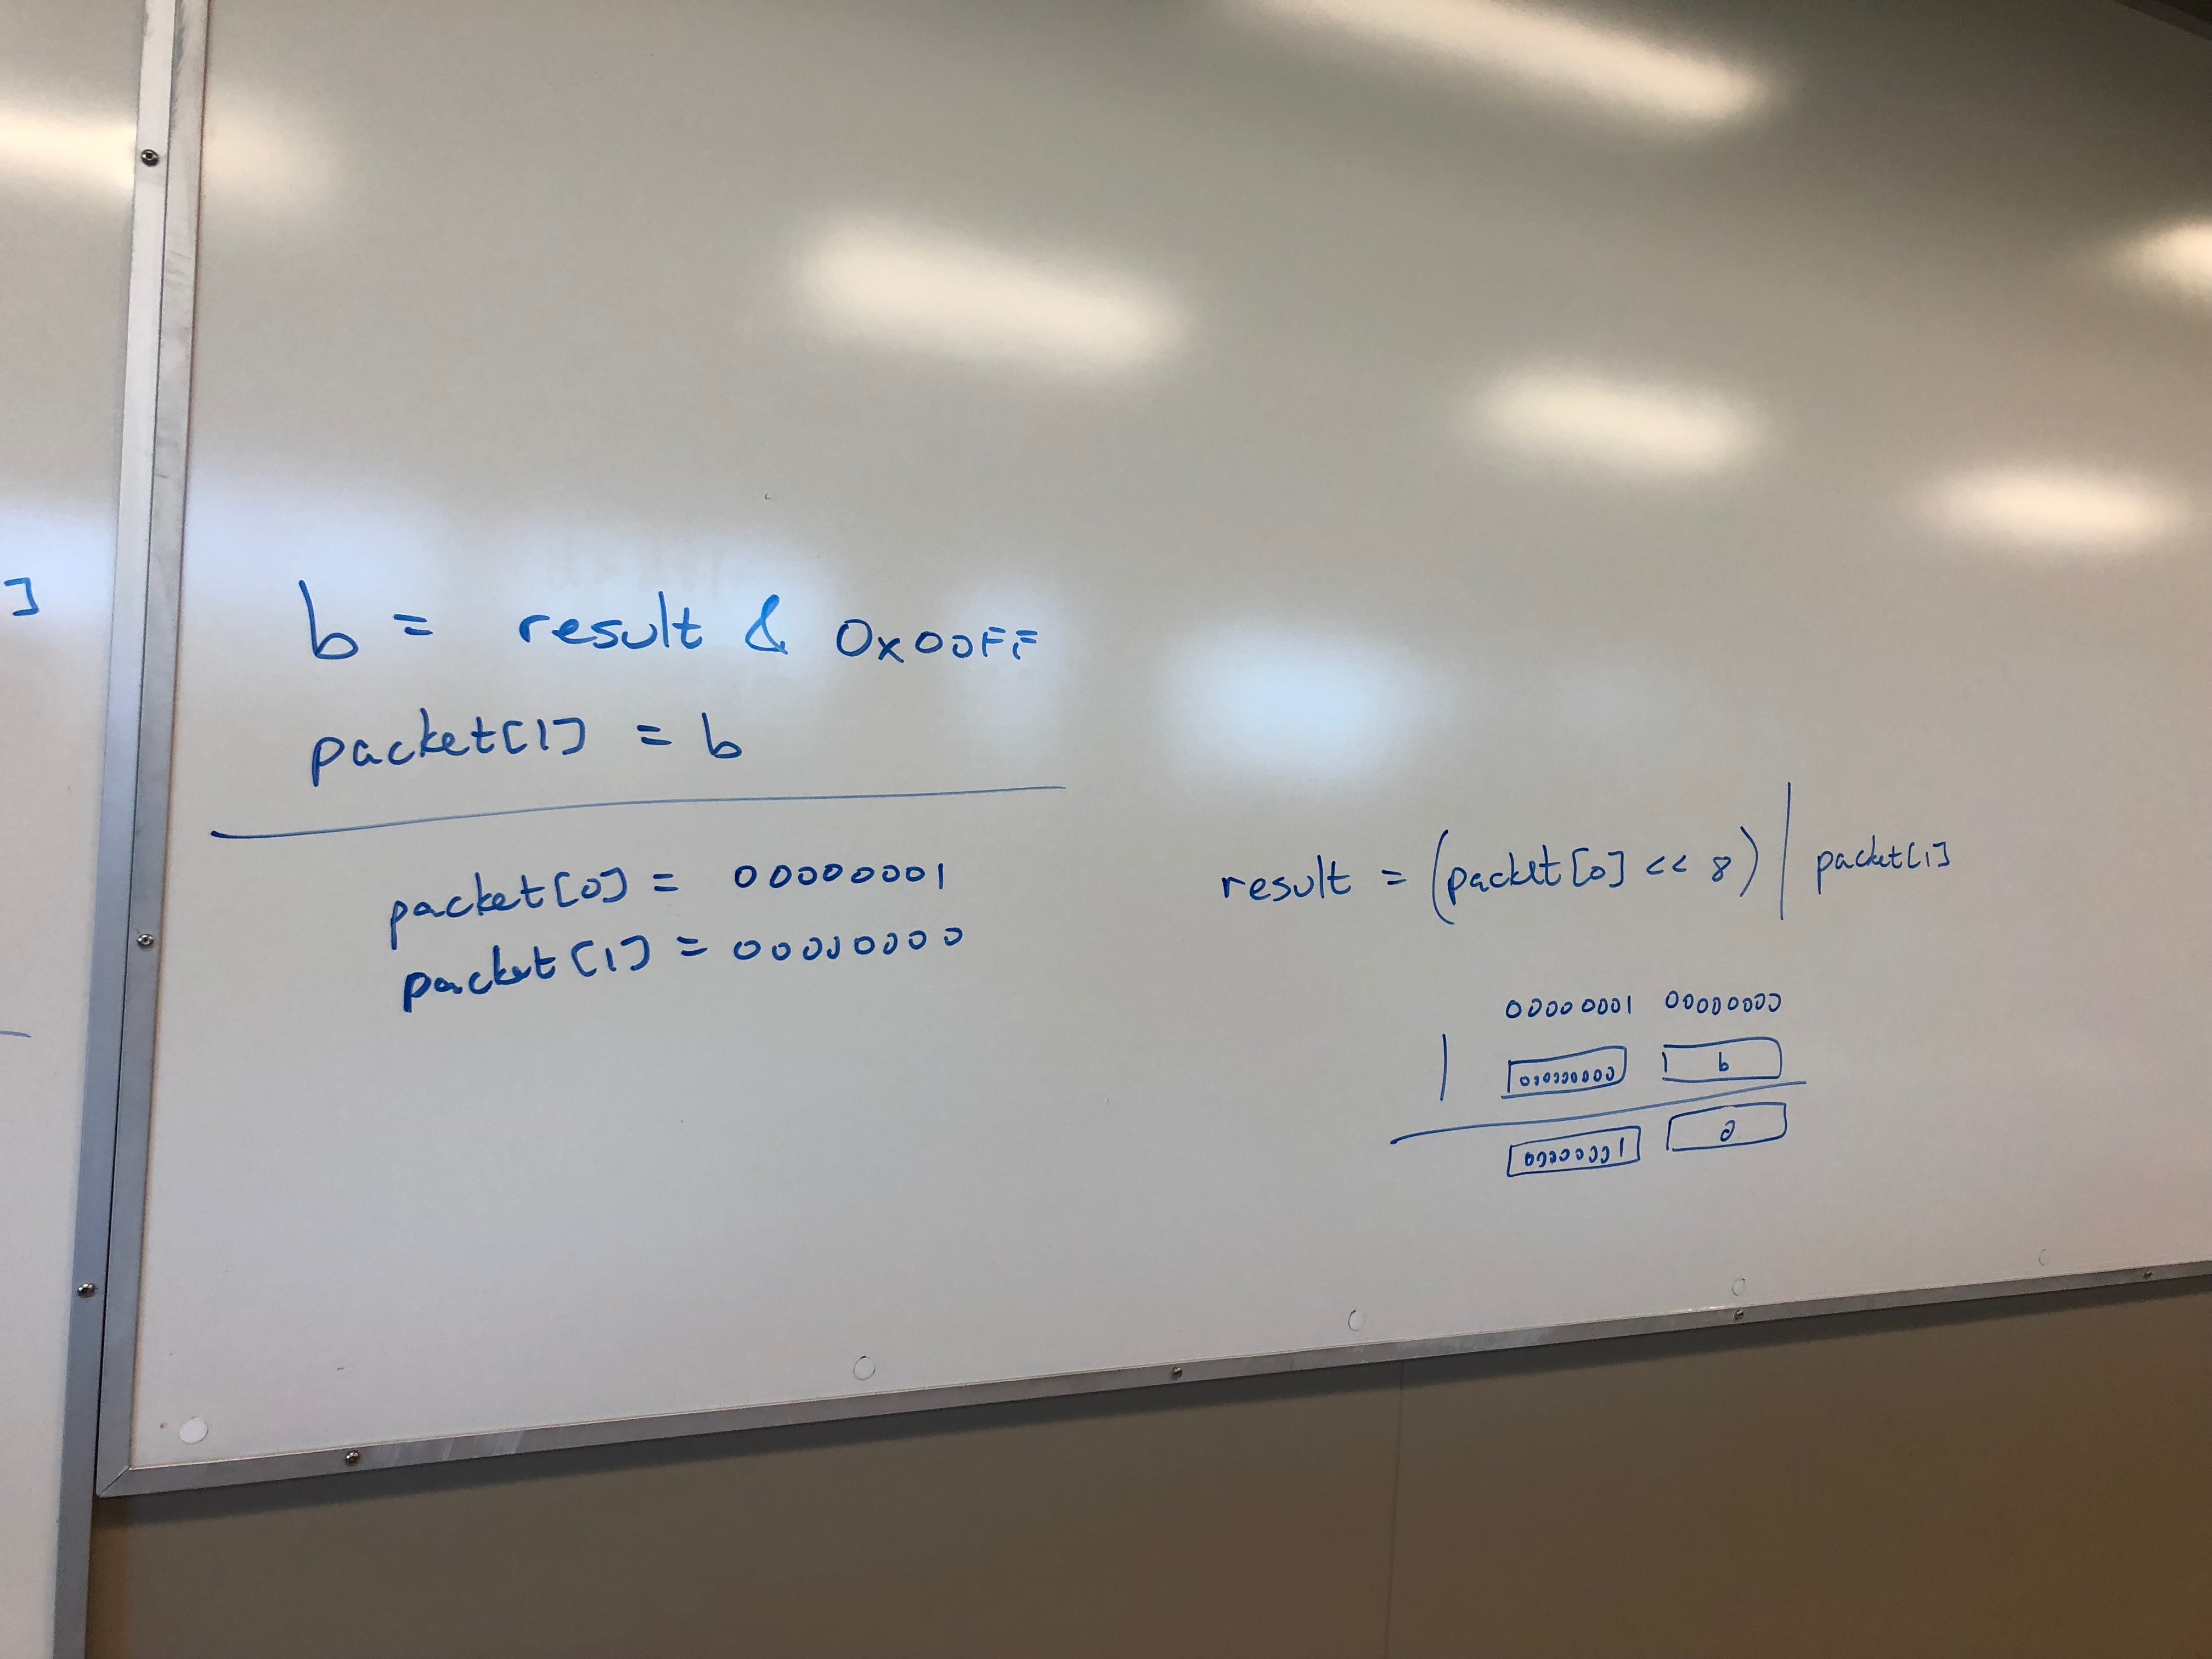 ]
b = result & 0x00FF
packet[1] = b
packet[0] = 00000001
packet[1] = 00010000
result = (packet[0] << 8) | packet[1]
00000001 00000000
| 00000000 b
00000001